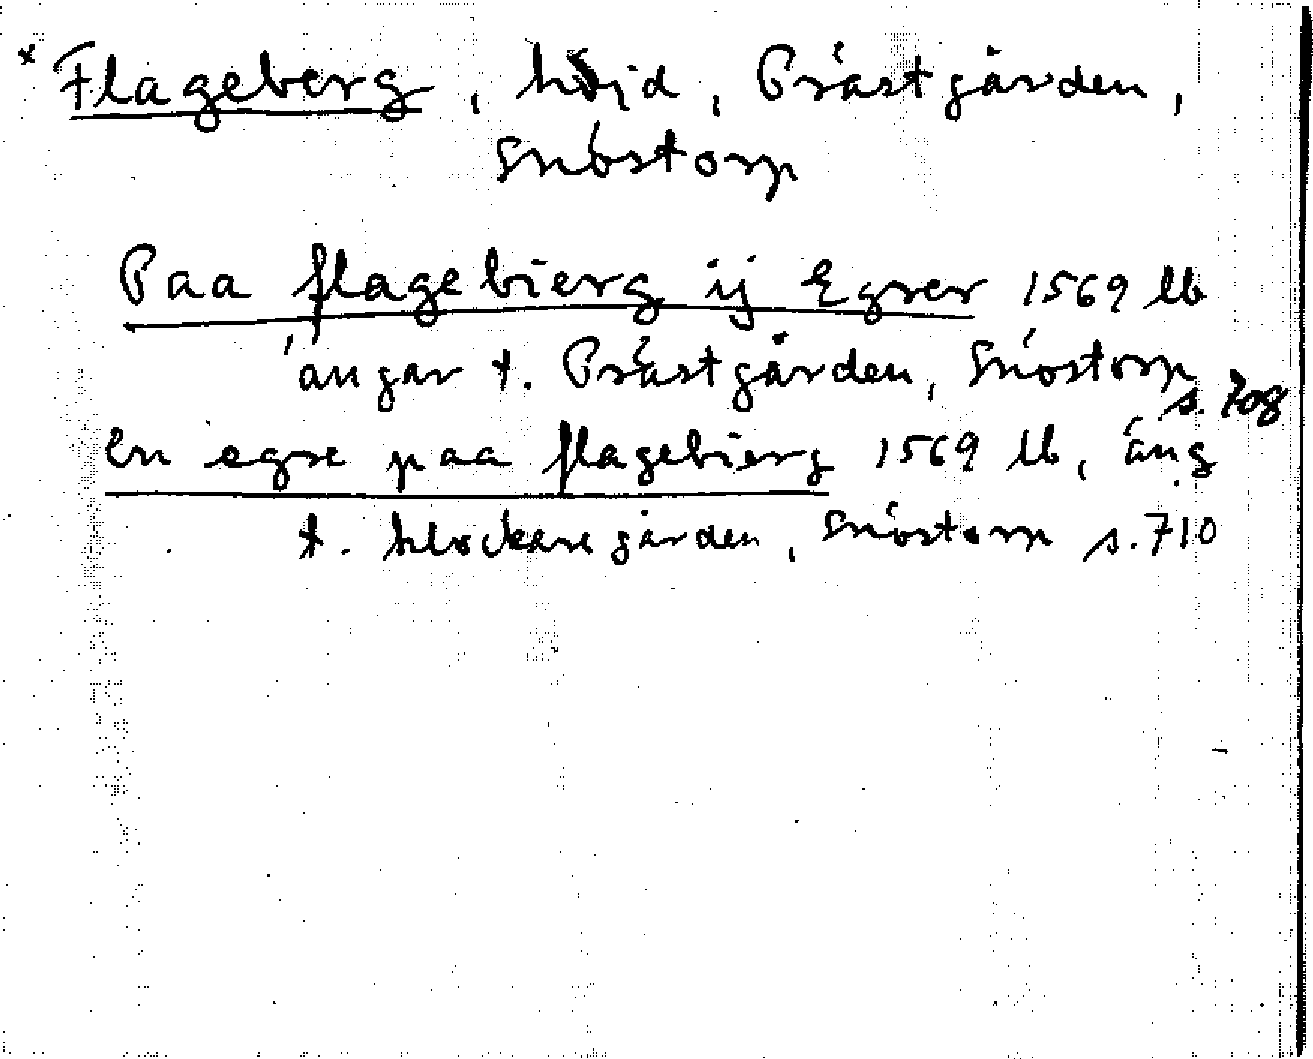 × Flageberg, höjd, Prästgården,
Snöstorp
Paa flagebierg ij Egrer 1569 lb
ängar t. Prästgården, Snöstorp
s. 708
En egre paa flagebierg 1569 lb, äng
t. klockaregården, Snöstorp s. 710